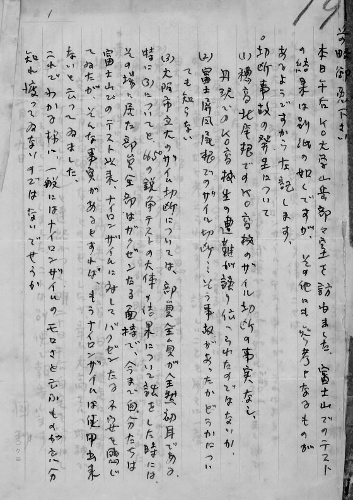 その時御免下さい
本日午后KO大学山岳部々室を訪ねました。富士山でのテスト
の結果は別紙の如くですが、その他にも参考となるものが
あるようですから左記します。
切断事故の発生について
(1) 穂高北尾根でのKO高校のザイル切断の事実なし。
丹沢でのKO高校生の遭難が誤り伝へられたのではないか。
(2) 富士屏風尾根でのザイル切断…そう事故があったかどうかについ
ても知らない
(3) 大阪市立大のザイル切断については、部員全員が全然初耳である。
特に(3)についてと、の鋭角テストの大体の結果について話をした時には、
その場に居た部員全部はガクゼンたる面持で、今まで自分たちは
富士山でのテスト以来、ナイロンザイルに対してバクゼンたる不安を感じ
てゐたが、そんな事実があるとすれば、もうナイロンザイルは使用出来
ないと云ってゐました。
これでわかる様に、一般にはナイロンザイルのモロさと云ふものが充分
知れ渡ってゐないのではないでせうか